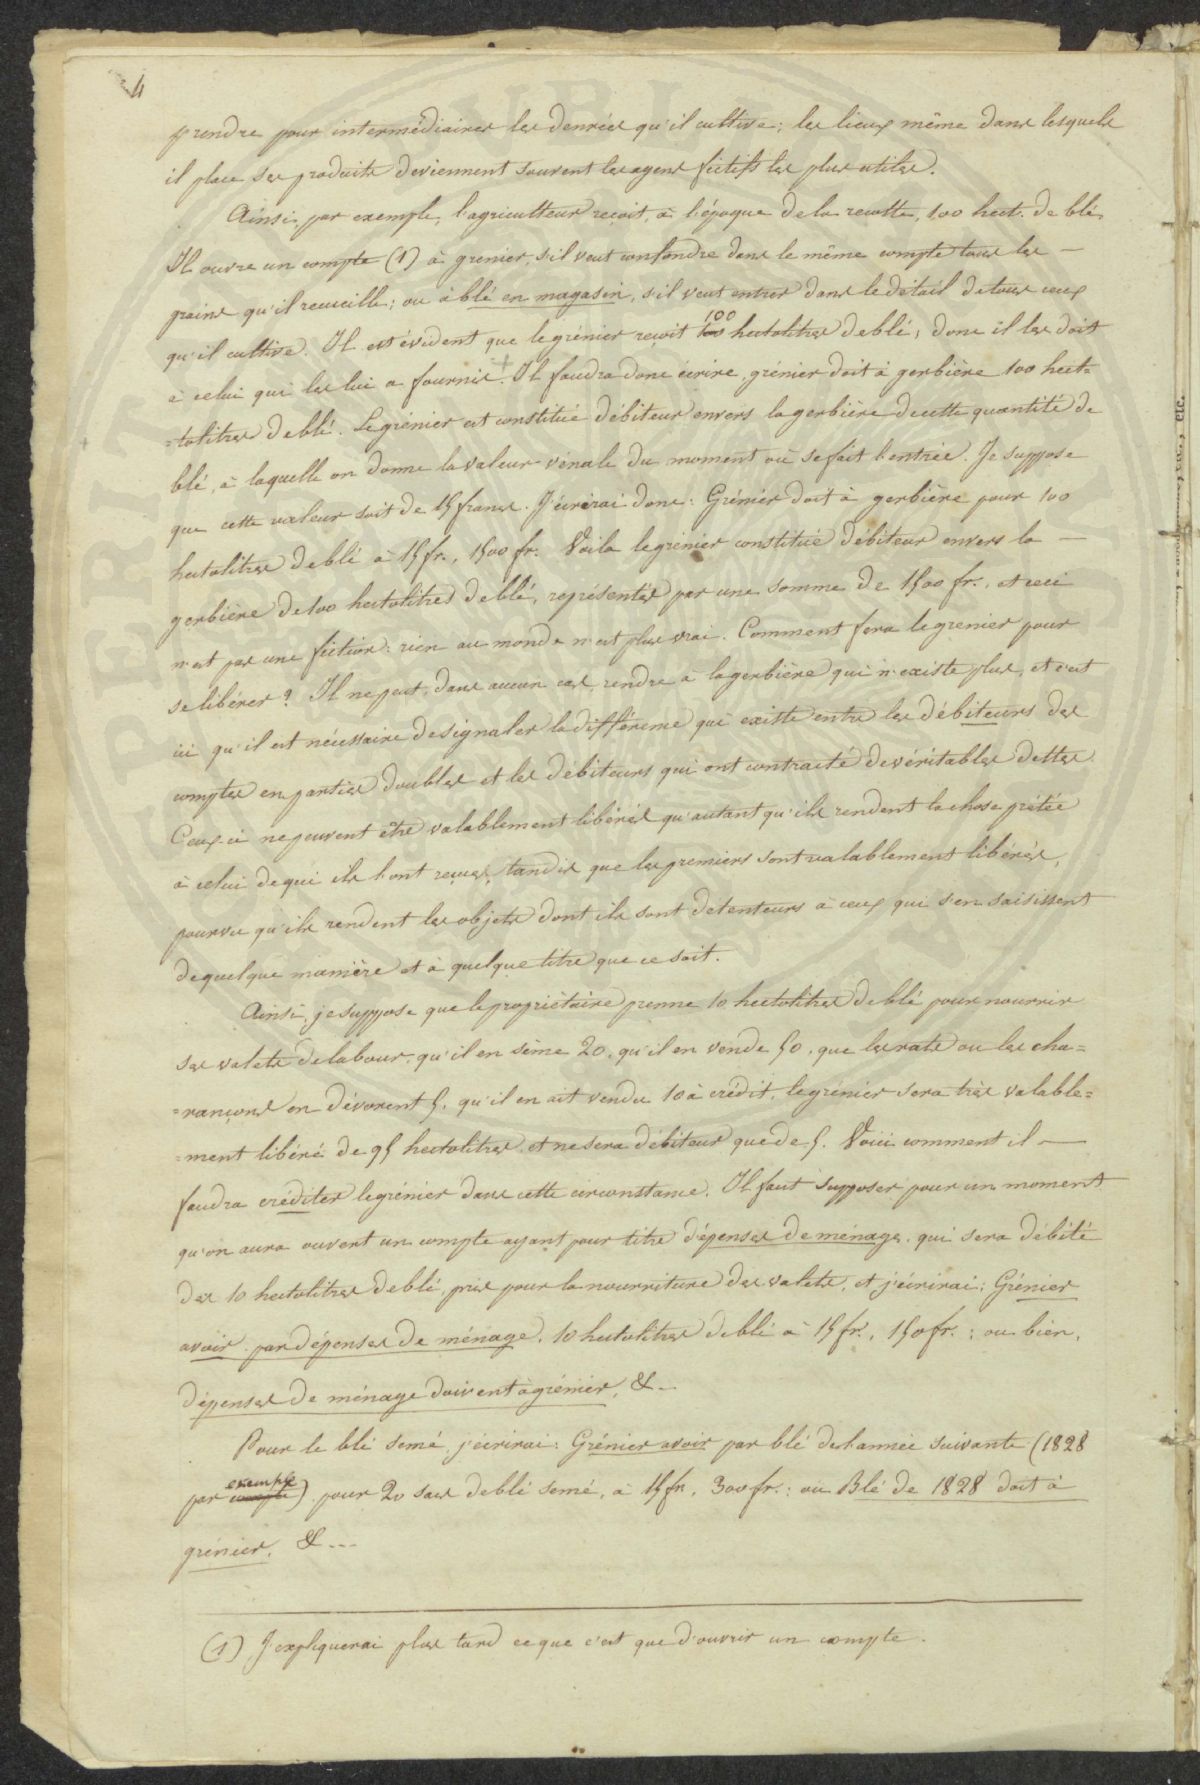 4
prendre pour intermédiaires les denrées qu'il cultive; les lieux même dans lesquels
il place ses produits deviennent souvent les agens fictifs les plus utiles.
Ainsi, par exemple, l'agriculteur reçoit, à l'époque de la recolte, 100 hect. de blé.
Il ouvre un compte (1) à grenier, s'il veut confondre dans le même compte tous les —
grains qu'il recueille; ou à blé en magasin, s'il veut entrer dans le détail de tous ceux
qu'il cultive. Il est évident que le grénier reçoit 100 hectolitres de blé; donc il les doit
à celui qui les lui a fournis. Il faudra donc écrire, grénier doit à gerbière 100 hect=
=tolitres de blé. Le grénier est constitué débiteur envers la gerbière de cette quantité de
blé, à laquelle on donne la valeur vénale du moment où se fait l'entrée. Je suppose
que cette valeur soit de 15 francs. J'écrirai donc: Grénier doit à gerbière pour 100
hectolitres de blé à 15 fr., 1500 fr. Voila le grénier constitué débiteur envers la —
gerbière de 100 hectolitres de blé, représentés par une somme de 1500 fr., et ceci
n'est pas une fiction: rien au monde n'est plus vrai. Comment fera le grenier pour
se libérer? Il ne peut, dans aucun cas, rendre à la gerbière qui n'existe plus, et c'est
ici qu'il est nécessaire de signaler la différence qui existe entre les débiteurs des
comptes en parties doubles et les débiteurs qui ont contracté de véritables dettes.
Ceux-ci ne peuvent être valablement libérés qu'autant qu'ils rendent la chose prétée
à celui de qui ils l'ont reçue, tandis que les premiers sont valablement libérés,
pourvu qu'ils rendent les objets dont ils sont detenteurs à ceux qui s'en saisissent
de quelque manière et à quelque titre que ce soit.
Ainsi, je suppose que le propriétaire prenne 10 hectolitres de blé pour nourrir
ses valets de labour, qu'il en sème 20, qu'il en vende 50, que les rats ou les cha=
=rançons en dévorent 5, qu'il en ait vendu 10 à crédit, le grénier sera très valable=
=ment libéré de 95 hectolitres, et ne sera débiteur que de 5. Voici comment il —
faudra créditer le grénier dans cette circonstance. Il faut supposer pour un moment
qu'on aura ouvert un compte ayant pour titre dépenses de ménage, qui sera débité
des 10 hectolitres de blé, pris pour la nourriture des valets, et j'écrirai: Grénier
avoir par dépenses de ménage, 10 hectolitres de blé à 15 fr., 150 fr.; ou bien,
dépenses de ménage doivent à grénier, &—
Pour le blé semé, j'écrirai: Grénier avoir par blé de l'année suivante (1828
par compte exemple) pour 20 sacs de blé semé, à 15 fr., 300 fr.; ou Blé de 1828 doit à
grénier, &...
(1) J'expliquerai plus tard ce que c'est que d'ouvrir un compte.